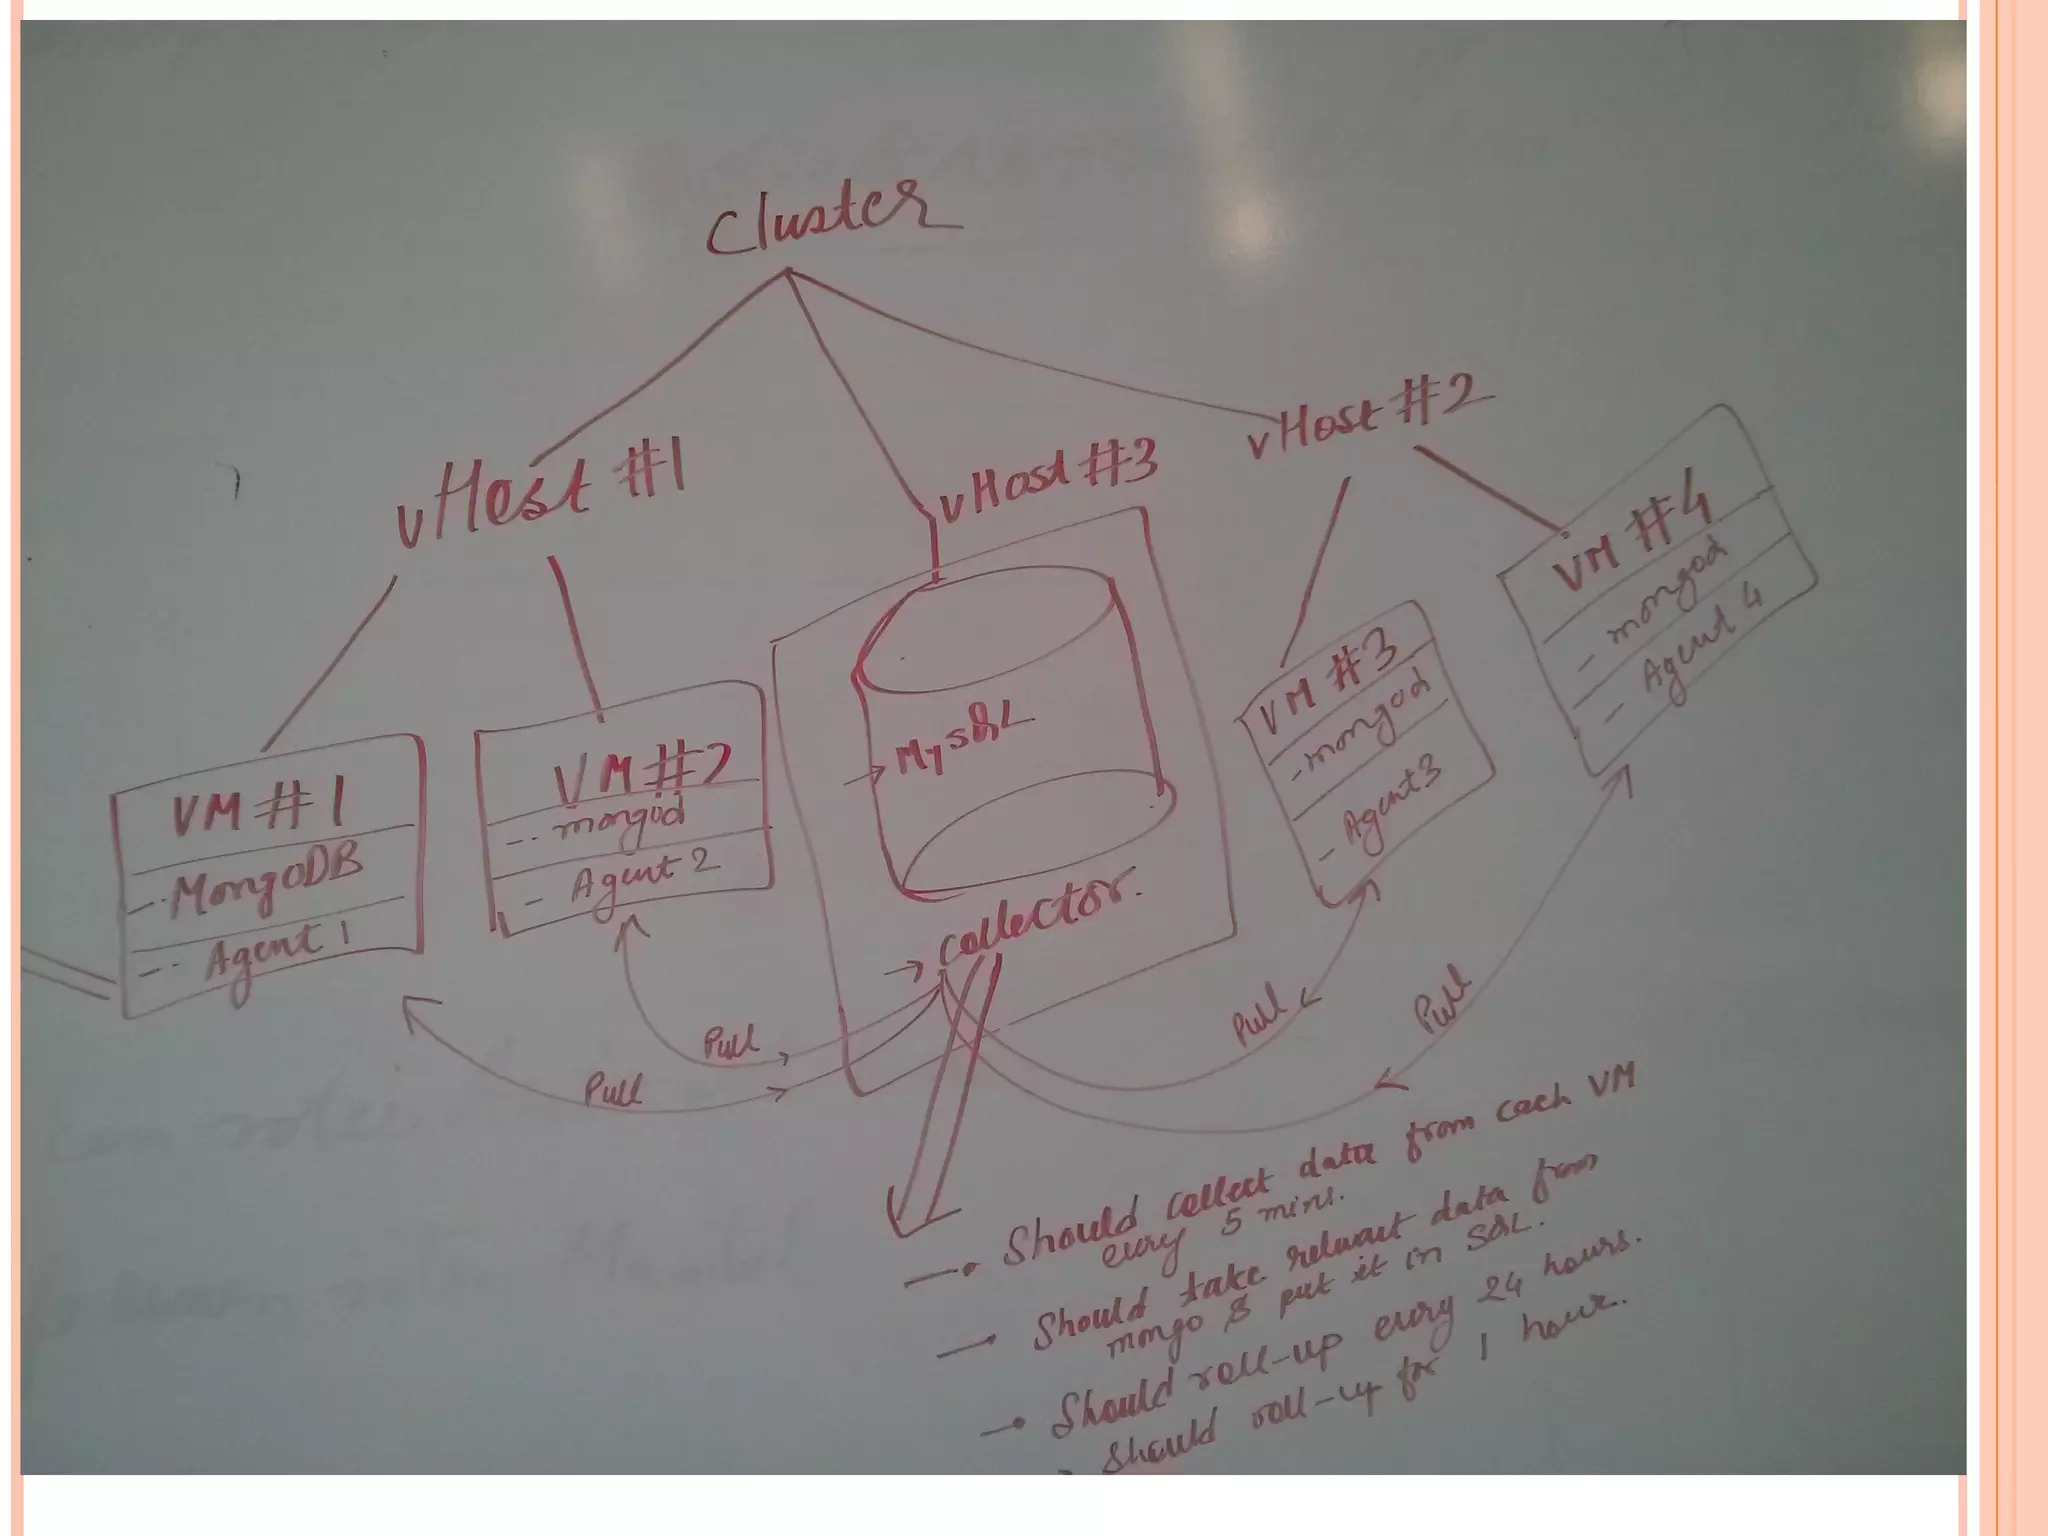 Cluster
vHost #1
vHost #3
vHost #2
VM #1
-- MongoDB
-- Agent 1
VM #2
-- mongod
- Agent 2
→ MySQL
→ Collector.
VM #3
- mongod
- Agent 3
VM #4
- mongod
- Agent 4
Pull
Pull
Pull
Pull
→ Should collect data from each VM
every 5 mins.
→ Should take relevant data from
mongo & put it in SQL.
→ Should roll-up every 24 hours.
Should roll-up for 1 hour.